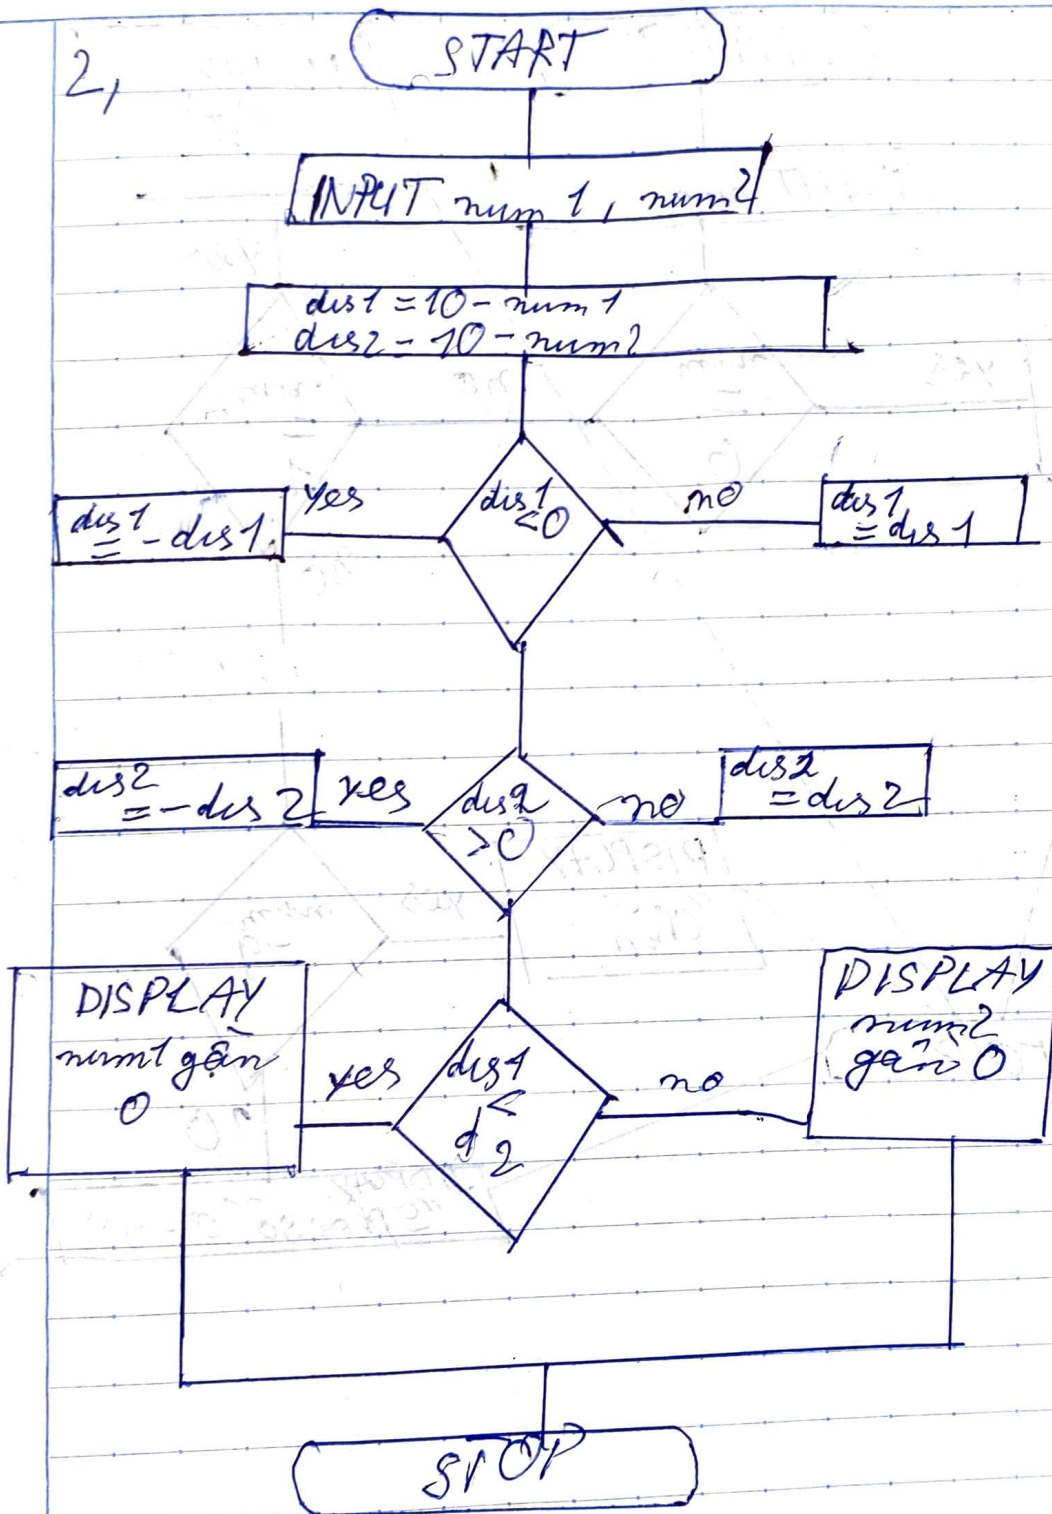 2,
START
INPUT num 1, num2
dis1 = 10 - num1
dis2 = 10 - num2
dis1
= - dis1
yes
dis1
<0
no
dis1
= dis1
dis2
= - dis2
yes
dis2
>0
no
dis2
= dis2
DISPLAY
num1 gần
0
yes
dis1
<
d2
no
DISPLAY
num2
gần 0
STOP